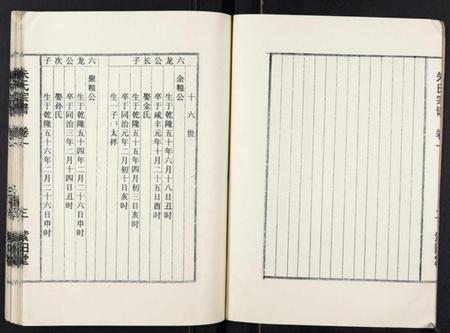 十六世
六龙公长子
余粮公
生于乾隆五十年六月十八日丑时
卒于咸丰元年十月二十五日酉时
娶金氏
生于乾隆五十五年四月初三日亥时
卒于同治元年二月初十日亥时
生一子：太祥
六龙公次子
聚粮公
生于乾隆五十四年二月二十六日丑时
卒于同治三年二月十四日丑时
娶孙氏
生于乾隆五十六年二月二十六日申时
朱氏宗谱 卷一
三 紫阳堂
朱氏宗谱 卷一